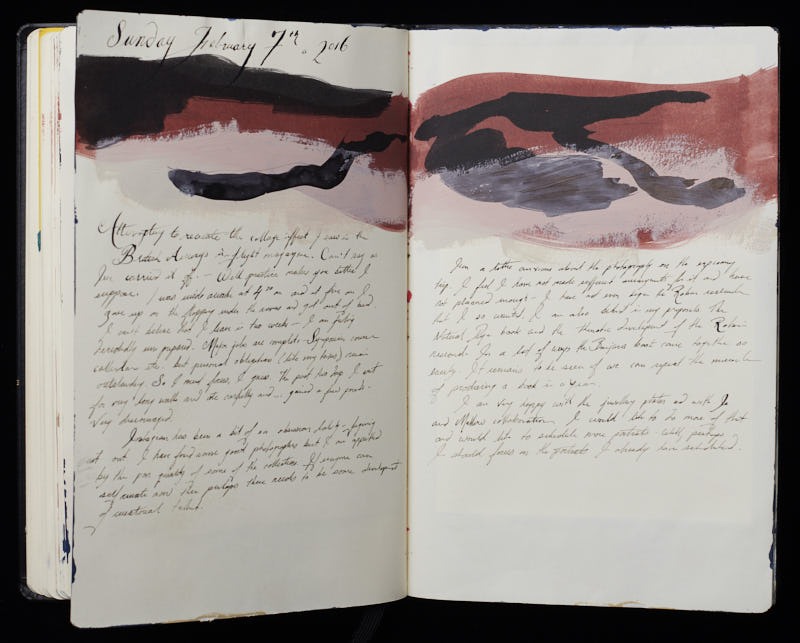 Sunday February 7th. 2016
Attempting to recreate the collage effect I saw in the
British Airways in-flight magazine. Can't say as
I've carried it off. - Well practice makes you better I
suppose. I was wide awake at 4 am and at five am I
gave up on the flopping under the covers and got out of bed
I can't believe that I leave in two weeks - I am feeling
incredibly unprepared. Major jobs are complete - Symposium
collection etc. but personal obligations (like my taxes) remain
outstanding. So I must focus, I guess. The past two days I went
for very long walks and ate carefully and... gained a few pounds.
Very discouraged.
Instagram has been a bit of an obsession lately - figuring
it out. I have found some good photographers but I am appalled
by the poor quality of some of the collections. If anyone can
self curate now then perhaps there needs to be some development
of curatorial talent.
I'm a little anxious about the photography on the upcoming
trip. I feel I have not made sufficient arrangements for it and have
not planned enough - I have not even begun the Rabari research
that I so wanted. I am also behind in my proposals. The
Natural Dye book and the thematic development of the Rabari
research. In a lot of ways the Banjara book came together so
easily. It remains to be seen if we can repeat the miracle
of producing a book in a year.
I am very happy with the jewellery photos and with
and collaboration. I would like to do more of that
and would like to schedule more portraits. Well perhaps
I should focus on the portraits I already have scheduled.